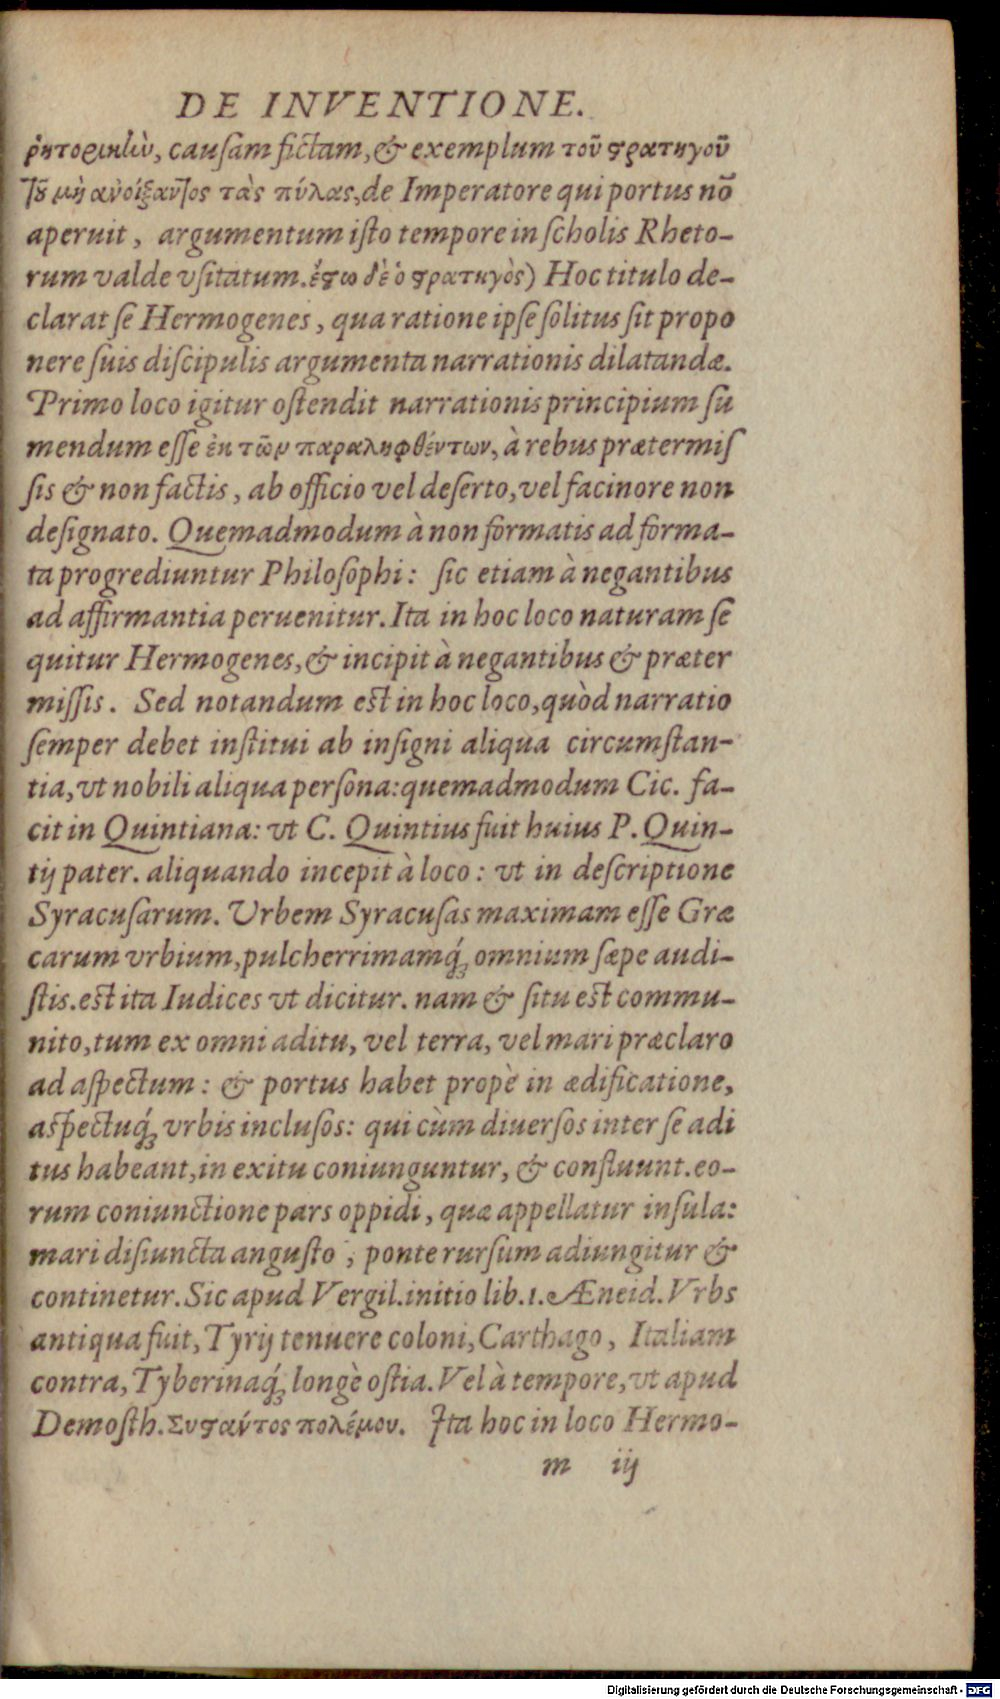 DE INVENTIONE.
ῥητορικὴν, cauſam fictam, & exemplum τοῦ ϛρατηγοῦ
τȣ͂ μὴ ἀνοίξαντος τὰς πύλας, de Imperatore qui portus nō
aperuit, argumentum iſto tempore in ſcholis Rheto-
rum valde vſitatum. ἔϛω δὲ ὁ ϛρατηγὸς) Hoc titulo de-
clarat ſe Hermogenes, qua ratione ipſe ſolitus ſit propo
nere ſuis diſcipulis argumenta narrationis dilatandæ.
Primo loco igitur oſtendit narrationis principium ſu
mendum eſſe ἐκ τῶν παραληφθέντων, à rebus prætermiſ
ſis & non factis, ab officio vel deſerto, vel facinore non
deſignato. Quemadmodum à non formatis ad forma-
ta progrediuntur Philoſophi: ſic etiam à negantibus
ad affirmantia peruenitur. Ita in hoc loco naturam ſe
quitur Hermogenes, & incipit à negantibus & præter
miſſis. Sed notandum eſt in hoc loco, quòd narratio
ſemper debet inſtitui ab inſigni aliqua circumſtan-
tia, vt nobili aliqua perſona: quemadmodum Cic. fa-
cit in Quintiana: vt C. Quintius fuit huius P. Quin-
tij pater. aliquando incepit à loco: vt in deſcriptione
Syracuſarum. Urbem Syracuſas maximam eſſe Græ
carum vrbium, pulcherrimamq́; omnium ſæpe audi-
ſtis. eſt ita Iudices vt dicitur. nam & ſitu eſt commu-
nito, tum ex omni aditu, vel terra, vel mari præclaro
ad aſpectum: & portus habet propè in ædificatione,
aſpectuq́; vrbis incluſos: qui cùm diuerſos inter ſe adi
tus habeant, in exitu coniunguntur, & confluunt. eo-
rum coniunctione pars oppidi, quæ appellatur inſula:
mari diſiuncta anguſto, ponte rurſum adiungitur &
continetur. Sic apud Vergil. initio lib. 1. Æneid. Vrbs
antiqua fuit, Tyrij tenuere coloni, Carthago, Italiam
contra, Tyberinaq́; longè oſtia. Vel à tempore, vt apud
Demoſth. Συϛάντος πολέμου. Ita hoc in loco Hermo-
m iij
Digitalisierung gefördert durch die Deutsche Forschungsgemeinschaft - DFG